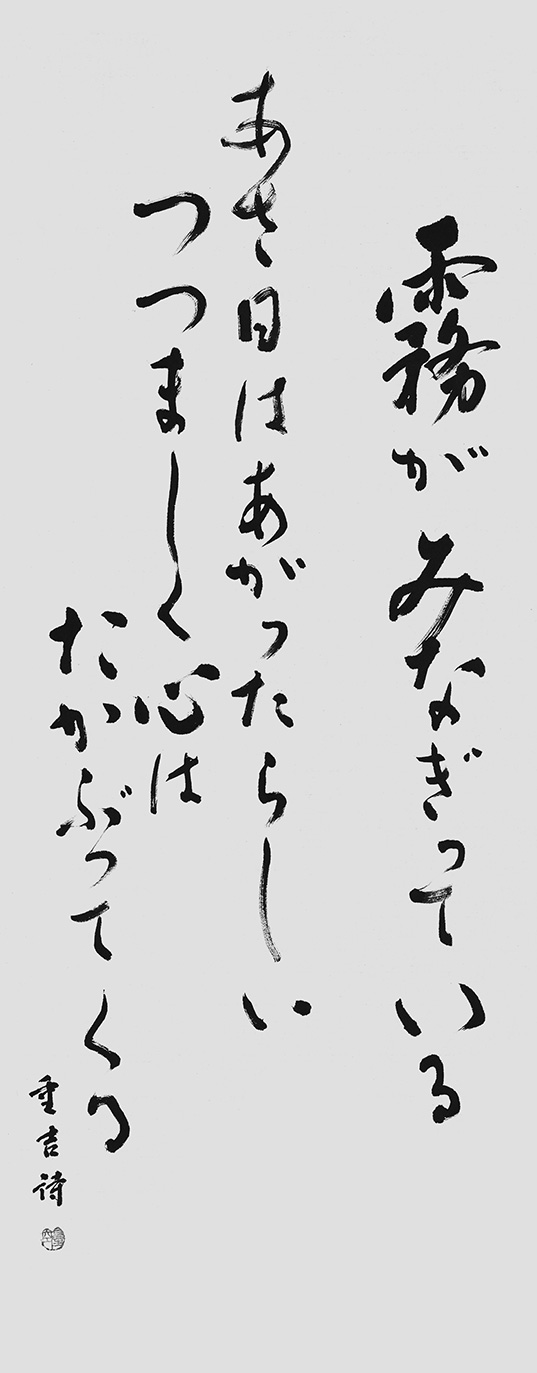 霧がみなぎっている
あさ日はあがったらしい
つつましく心は
たかぶってくる
重吉詩